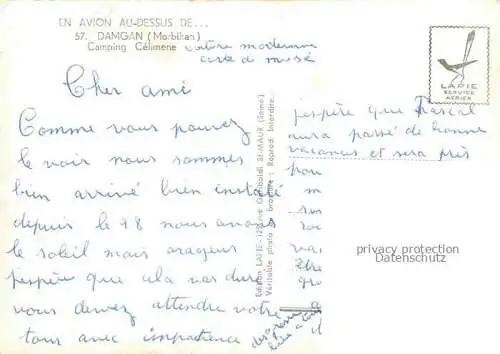 EN AVION AU-DESSUS DE...
57. DAMGAN (Morbihan)
Camping Célimene
voiture moderne
carte de musé
LAPIE
SERVICE
AERIEN
Cher ami
Comme vous pouvez
le voir nous sommes
bien arrivé bien installé
depuis le 18 nous avons
le soleil mais orageux
j'espère que cela vas dure
vous devez attendre votre
tour avec impatience
Edition LAPIE - 12, rue Garibaldi St-MAUR (Seine)
Véritable photo au bromure : Reprod. interdite.
j'espère que Pascal
aura passé de bonne
vacances et sera près
pou
privacy protection
Sammlerdatenbank.de